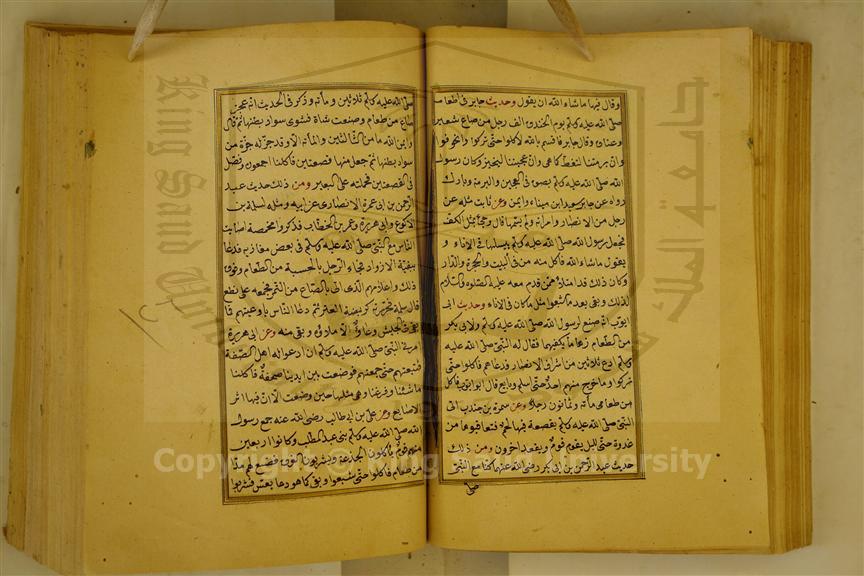 وقال فيها ماشاء الله ان يقول وحديث جابر في اطعامه
صلى الله عليه وسلم يوم الخندق الف رجل من صاع شعير
وعناق وقال جابر فاقسم بالله لاكلوا حتى تركوا وانحرفوا
وان برمتنا لتغط كما هي وان عجيننا ليخبز وكان رسول
الله صلى الله عليه وسلم بصق في العجين والبرمة وبارك
رواه عن جابر سعيد ابن ميناء وايمن وعن ثابت مثله عن
رجل من الانصار وامراته ولم يسمهما قال وجئ بمثل الكف
فجعل رسول الله صلى الله عليه وسلم يبسطها في الاناء و
يقول ماشاء الله فاكل منه من في البيت والحجرة والدار
وكان ذلك قد امتلأ ممن قدم معه عليه الصلوة والسلام
لذلك وبقى بعد ما شبعوا مثل ماكان في الاناء وحديث ابى
ايوب انه صنع لرسول الله صلى الله عليه وسلم ولابى بكر
من الطعام زهاء ما يكفيهما فقال له النبى صلى الله عليه
وسلم ادع ثلاثين من اشراف الانصار فدعاهم فاكلوا حتى
تركوا وماخرج منهم احد حتى اسلم وبايع قال ابو ايوب فاكل
من طعامى مائة وثمانون رجلا وعن سمرة بن جندب اتى
النبى صلى الله عليه وسلم بقصعة فيها لحم فتعاقبوها من
غدوة حتى الليل يقوم قوم ويقعد آخرون ومن ذلك
حديث عبد الرحمن بن ابى بكر رضى الله عنهما كنا مع النبى
صلى
صلى الله عليه وسلم ثلاثين ومائة وذكر في الحديث انه عجن
صاع من طعام وصنعت شاة فشوى سواد بطنها ثم قال
وايم الله ما من الثلاثين والمائة الا وقد حز له حزة من
سواد بطنها ثم جعل منها قصعتين فاكلنا اجمعون وفضل
في القصعتين فحملته على البعير ومن ذلك حديث عبد
الرحمن بن ابى عمرة الانصارى عن ابيه ومثله لسلمة بن
الاكوع وابى هريرة وعمر بن الخطاب فذكروا مخمصة اصابت
الناس مع النبى صلى الله عليه وسلم في بعض مغازيه فدعا
ببقية الازواد فجاء الرجل بالحثية من الطعام وفوق
ذلك واعلاهم الذى اتى بالصاع من التمر فجمعه على نطع
قال سلمة فحزرته كربضة العنز ثم دعا الناس باوعيتهم فما
بقى في الجيش وعاء الا ملاؤه وبقى منه وعن ابى هريرة
امرنى النبى صلى الله عليه وسلم ان ادعو له اهل الصفة
فتتبعتهم حتى جمعتهم فوضعت بين ايدينا صحفة فاكلنا
ماشئنا وفرغنا وهى مثلها حين وضعت الا ان فيها اثر
الاصابع وعن على بن ابى طالب رضى الله عنه جمع رسول
الله صلى الله عليه وسلم بنى عبد المطلب وكانوا اربعين
منهم قوم ياكلون الجذعة ويشربون الفرق فصنع لهم مدا
من طعام فاكلوا حتى شبعوا وبقى كما هو ثم دعا بعس فشربوا
جامعة الملك
King Saud
Copyright © King Saud University